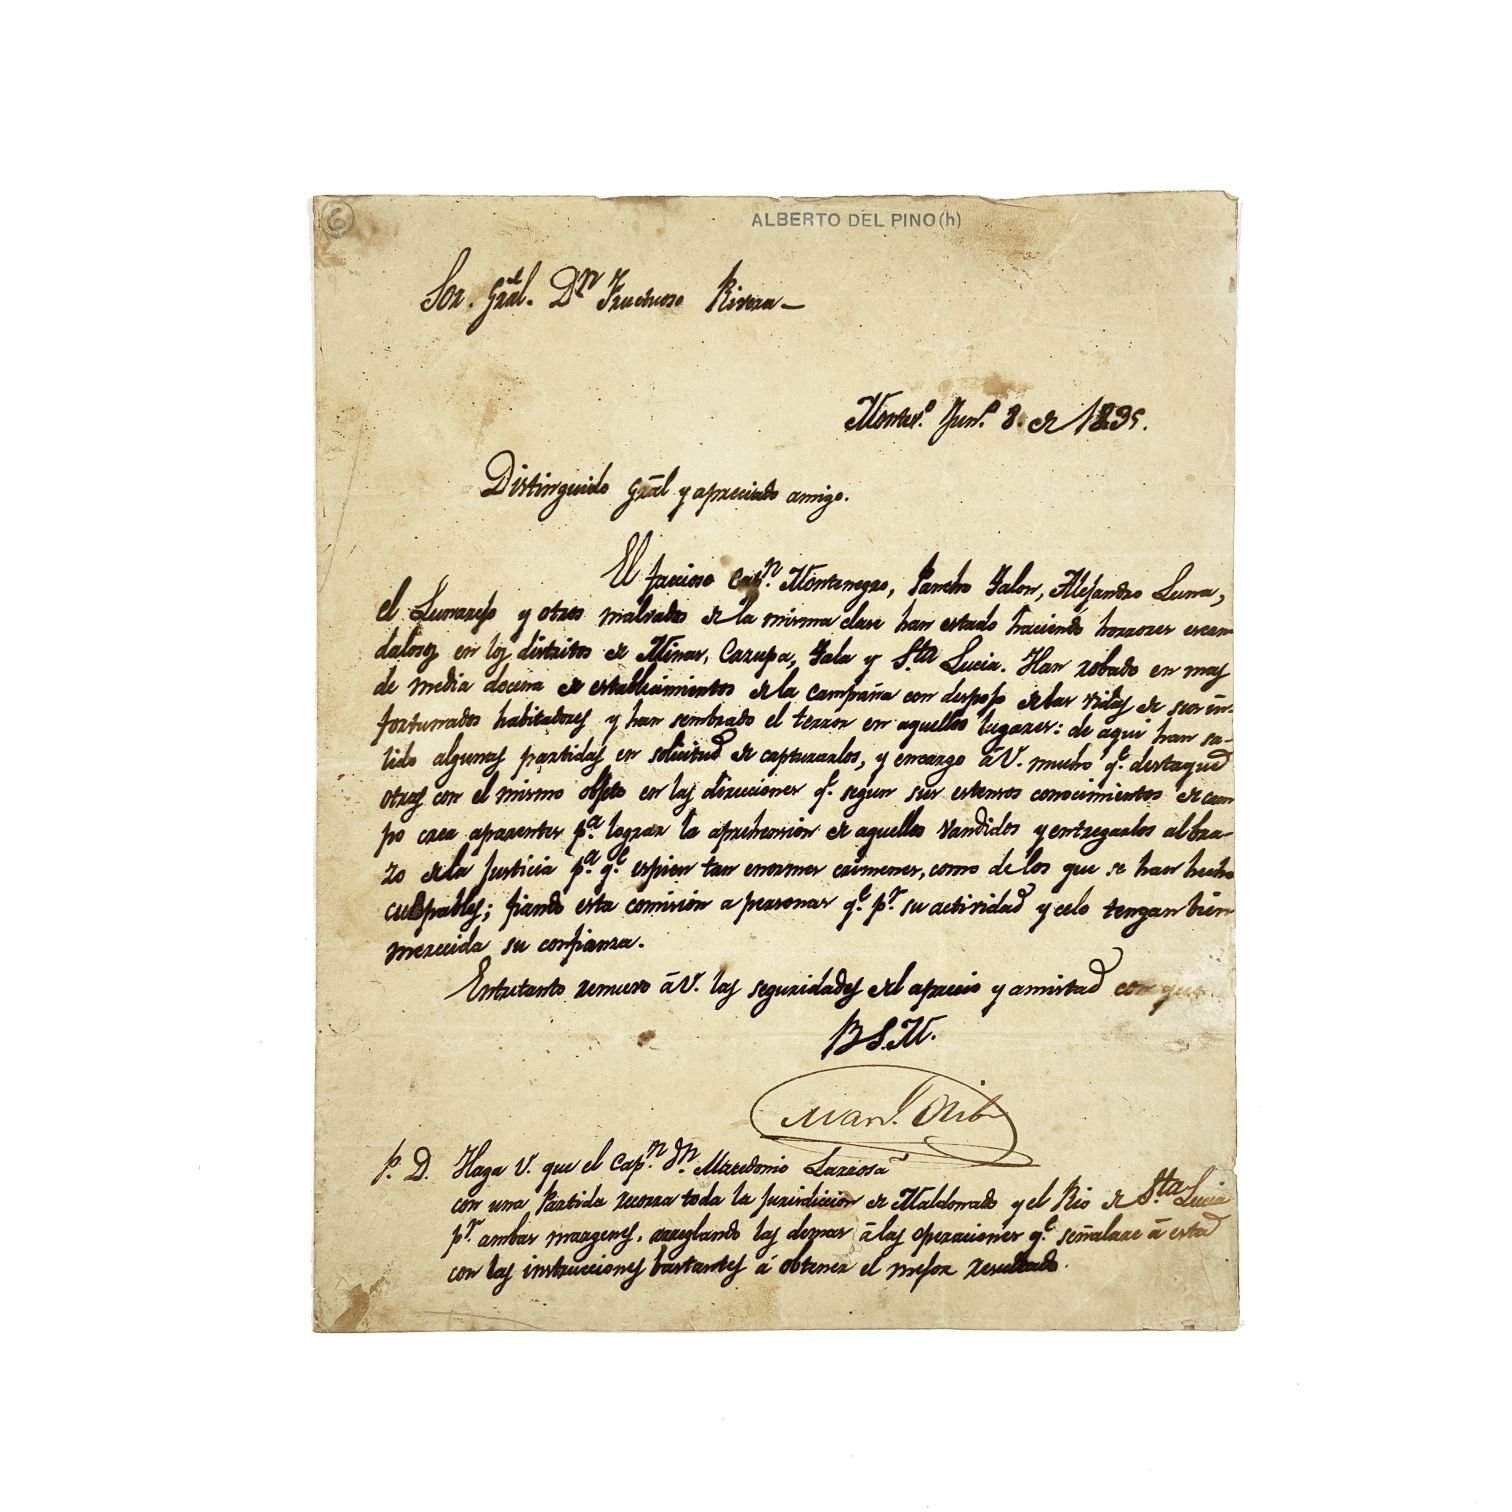 6
ALBERTO DEL PINO (h)
Sor. Gral. Dn Fructuoso Rivera—
Montevo. Jun.o 8. de 1835.
Distinguido Grãl y apreciado amigo.
El faccioso Capn. Montenegro, Pancho Jalon, Alejandro Luna,
el Lunarejo y otros malvados de la misma clase han estado haciendo horrores escan
dalosos en los distritos de Minas, Carupa, Gala y S.ta Lucia. Han robado en mas
de media docena de establecimientos de la campaña con despojo de las vidas de sus in-
fortunados habitadores y han sembrado el terror en aquellos lugares: de aqui han sa-
lido algunas partidas en solicitud de capturarlos, y encargo á V. mucho q.e destaque
otras con el mismo objeto en las direcciones q.e segun sus estensos conocimientos de cam
po crea aparentes p.a lograr la aprehension de aquellos vandidos y entregarlos al bra-
zo de la justicia p.a q.e espien tan enormes crimenes, como de los que se han hecho
culpables; fiando esta comision a personas q.e p.r su actividad y celo tengan bien
merecida su confianza.
Entretanto renuevo á V. las seguridades del aprecio y amistad con que
B S. M.
Man.l Oribe
P. D. Haga V. que el Cap.n Dn. Macedonio
con una Partida recorra toda la jurisdiccion de Maldonado y el Rio de S.ta Lucia
p.r ambas margenes, arreglando las demas á las operaciones q.e señalare á esta
con las instrucciones bastantes á obtener el mejor resultado.